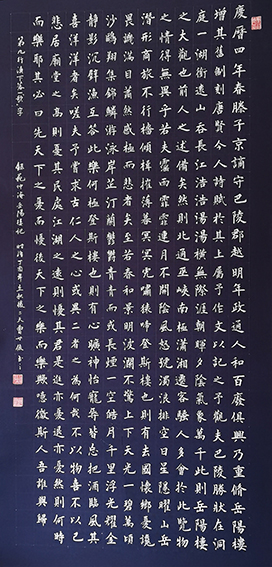 慶曆四年春滕子京謫守巴陵郡越明年政通人和百廢俱興乃重修岳陽樓
增其舊制刻唐賢今人詩賦於其上屬予作文以記之予觀夫巴陵勝狀在洞
庭一湖銜遠山吞長江浩浩湯湯橫無際涯朝暉夕陰氣象萬千此則岳陽樓
之大觀也前人之述備矣然則北通巫峽南極瀟湘遷客騷人多會於此覽物
之情得無異乎若夫霪雨霏霏連月不開陰風怒號濁浪排空日星隱曜山岳
潛形商旅不行檣傾楫摧薄暮冥冥虎嘯猿啼登斯樓也則有去國懷鄉憂讒
畏譏滿目蕭然感極而悲者矣至若春和景明波瀾不驚上下天光一碧萬頃
沙鷗翔集錦鱗游泳岸芷汀蘭鬱鬱青青而或長煙一空皓月千里浮光耀金
靜影沉璧漁互答此樂何極登斯樓也則有心曠神怡寵辱皆忘把酒臨風其
喜洋洋者矣嗟夫予嘗求古仁人之心或異二者之為何哉不以物喜不以己
悲居廟堂之高則憂其民處江湖之遠則憂其君是進亦憂退亦憂然則何時
而樂耶其必曰先天下之憂而憂後天下之樂而樂歟噫微斯人吾誰與歸
第九行漁下落一歌字 錄范仲淹岳陽樓記 時維丁酉年立秋後